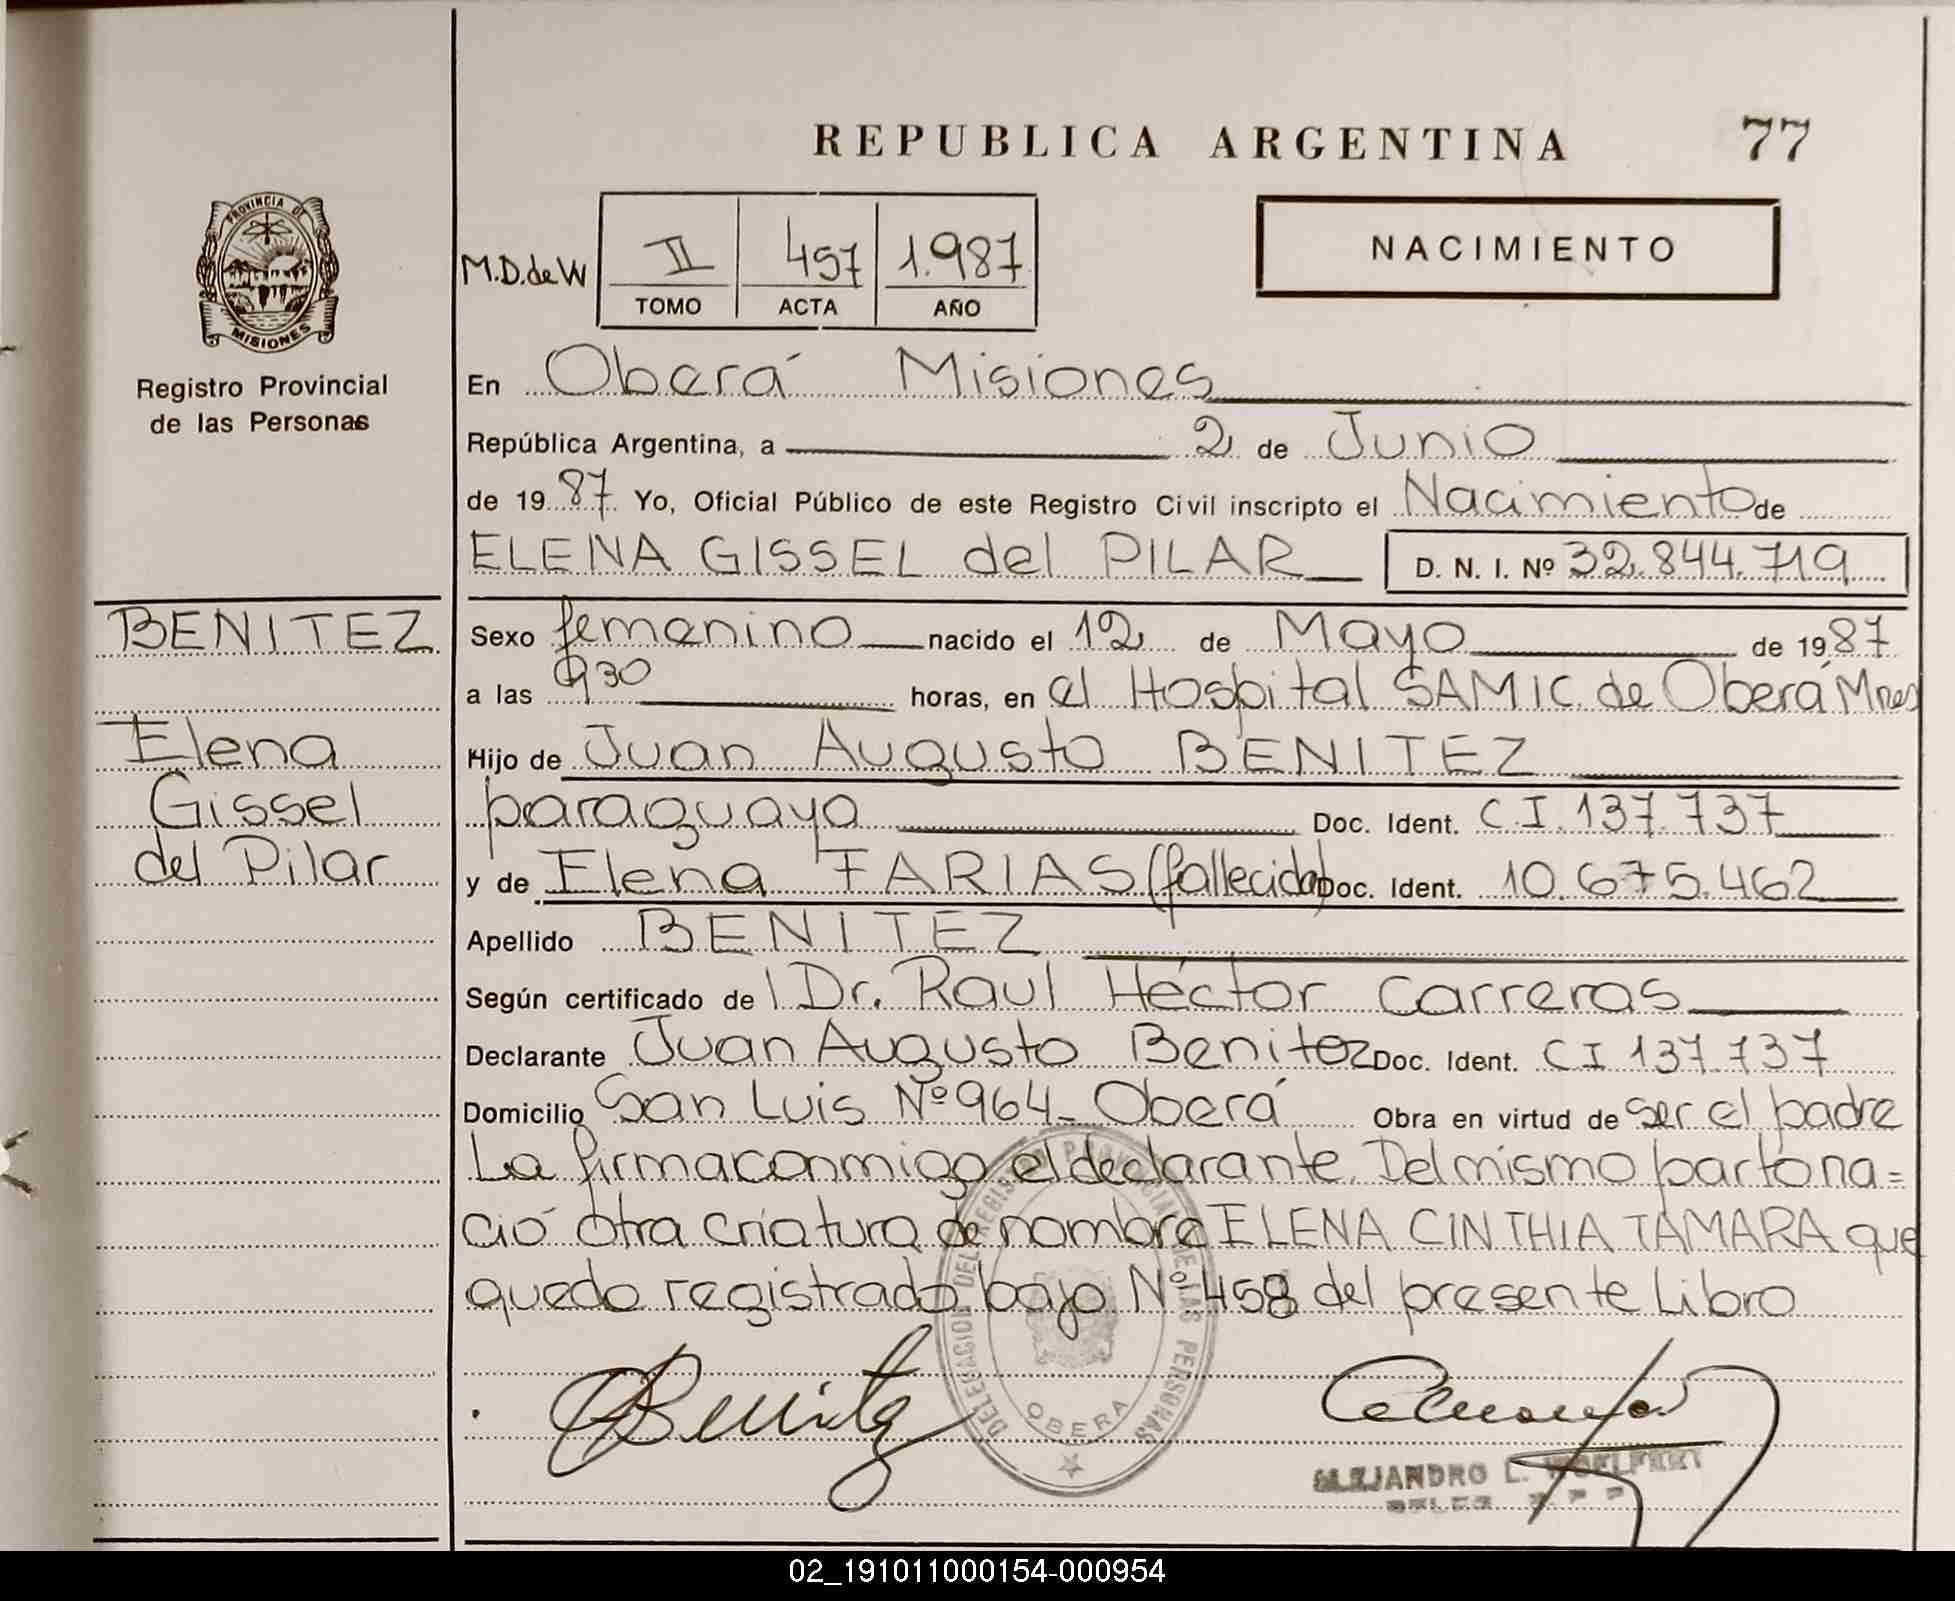 REPUBLICA ARGENTINA 77
PROVINCIA DE
MISIONES
Registro Provincial
de las Personas
M.D.de W
II 457 1.987
TOMO ACTA AÑO
NACIMIENTO
En Oberá Misiones
República Argentina, a 2 de Junio
de 19 87 Yo, Oficial Público de este Registro Civil inscripto el Nacimiento de
ELENA GISSEL del PILAR D. N. I. Nº 32.844.719
BENITEZ
Elena
Gissel
del Pilar
Sexo femenino nacido el 12 de Mayo de 19 87
a las 9 30 horas, en el Hospital SAMIC de Oberá Mnes
Hijo de Juan Augusto BENITEZ
paraguayo Doc. Ident. C I 137.737
y de Elena FARIAS (fallecida) Doc. Ident. 10.675.462
Apellido BENITEZ
Según certificado de l Dr. Raul Héctor Carreras
Declarante Juan Augusto Benitez Doc. Ident. C I 137.737
Domicilio San Luis Nº 964- Oberá Obra en virtud de ser el padre
La firma conmigo el declarante. Del mismo parto na=
ció otra criatura de nombre ELENA CINTHIA TAMARA que
quedo registrado bajo Nº 458 del presente Libro
DELEGACION DEL REGISTRO PROVINCIAL DE LAS PERSONAS
OBERA
Benitez
ALEJANDRO L. WOELFERT
02_191011000154-000954